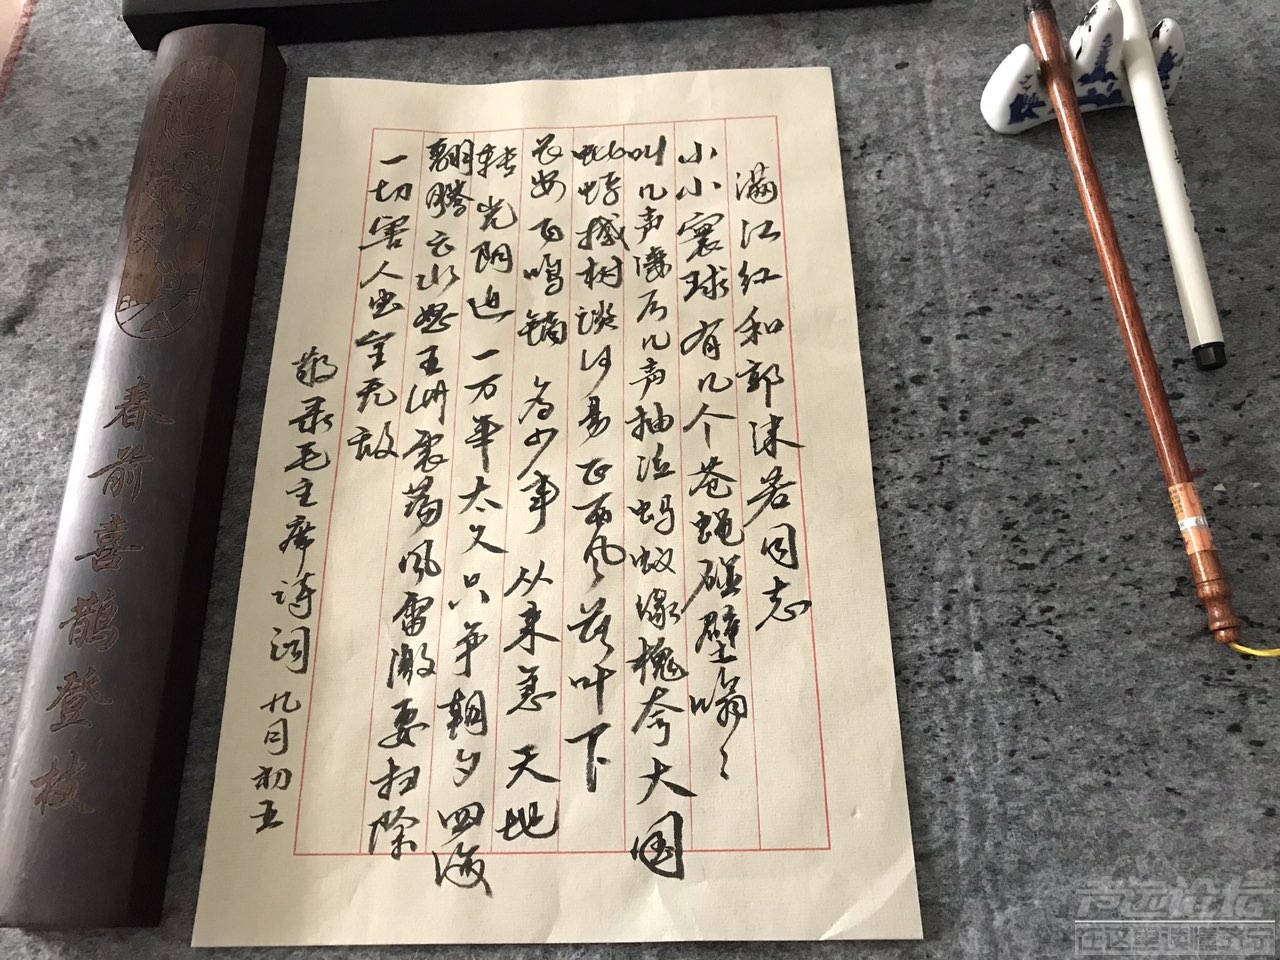 满江红和郭沫若同志
小小寰球有几个苍蝇碰壁嗡々
叫几声凄厉几声抽泣蚂蚁缘槐夸大国
蚍蜉撼树谈何易正西风落叶下
长安飞鸣镝 多少事 从来急 天地
转光阴迫 一万年太久只争朝夕四海
翻腾云水怒五洲震荡风雷激要扫除
一切害人虫全无敌
敬录毛主席诗词 九月初五
春前喜鹊登枝
声远论坛
在这里读懂济宁